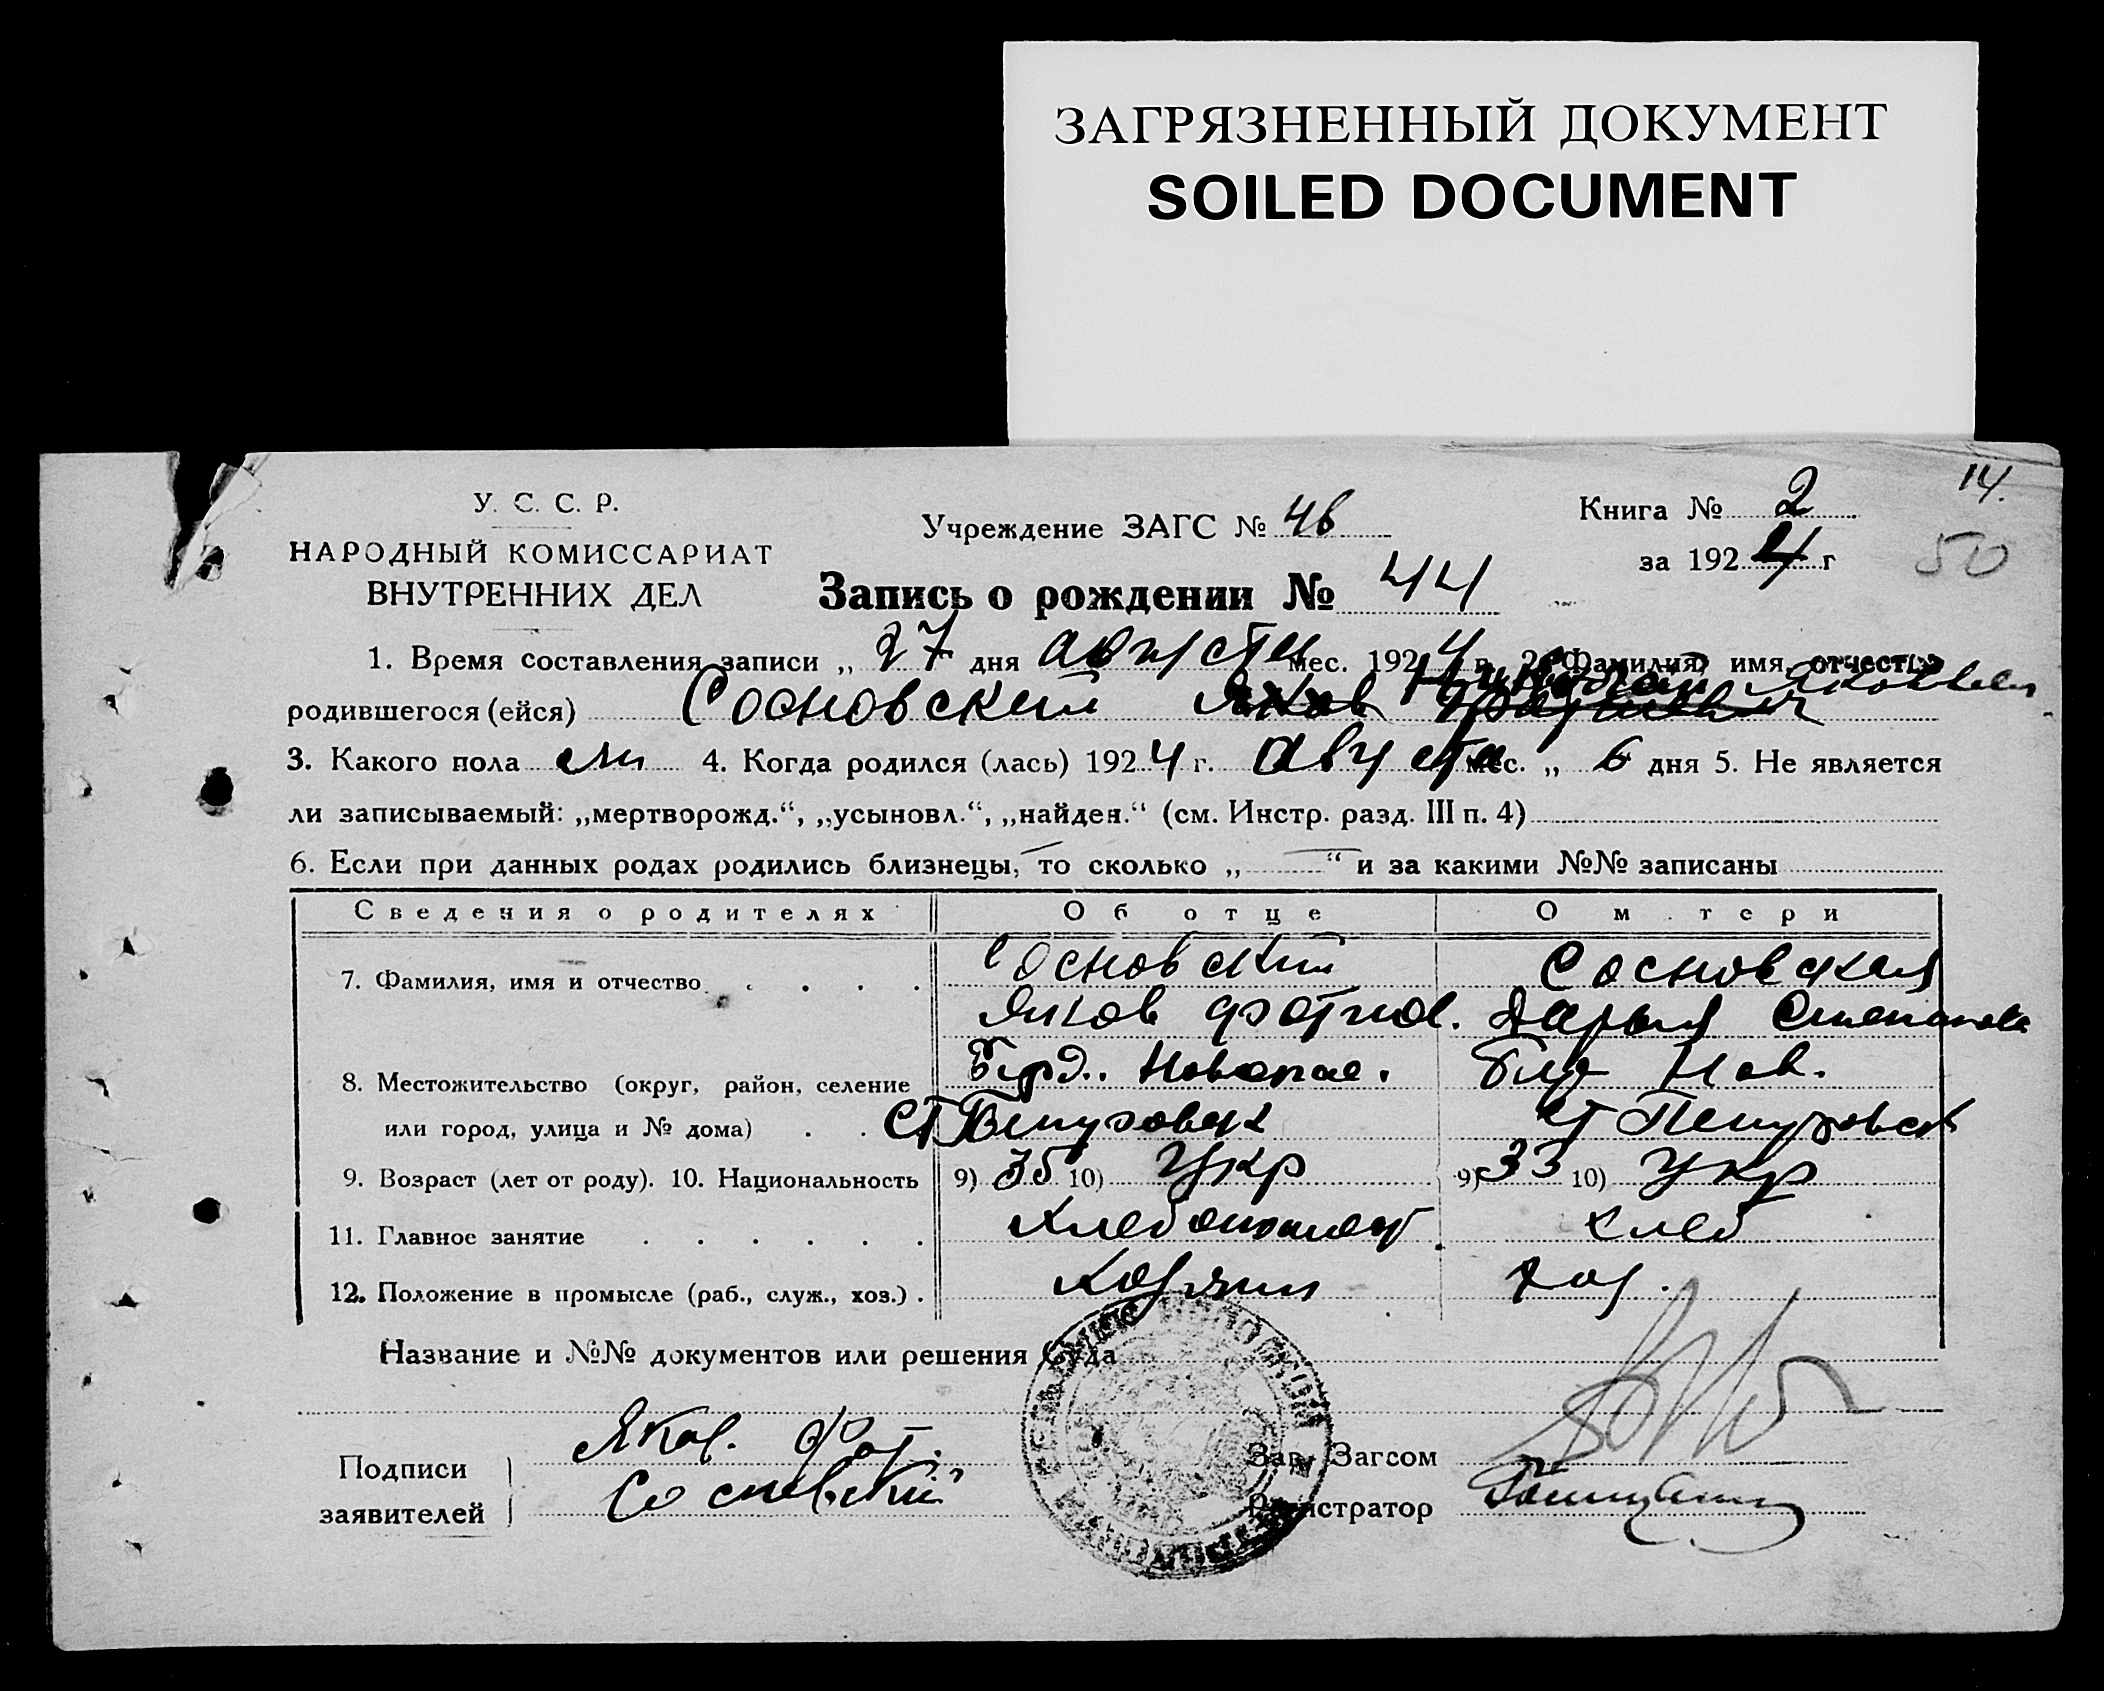 ЗАГРЯЗНЕННЫЙ ДОКУМЕНТ
SOILED DOCUMENT
14.
50
У. С. С. Р.
НАРОДНЫЙ КОМИССАРИАТ
ВНУТРЕННИХ ДЕЛ
Учреждение ЗАГС № 46
Книга № 2
за 1924 г
Запись о рождении № 44
1. Время составления записи „ 27 дня августа мес. 1924 г. 2. Фамилия, имя, отчество
родившегося (ейся) Сосновский Яков Николай
3. Какого пола м 4. Когда родился (лась) 1924 г. Августа мес. „ 6 дня 5. Не является
ли записываемый: „мертворожд.“, „усыновл.“, „найден.“ (см. Инстр. разд. III п. 4)
6. Если при данных родах родились близнецы, то сколько „ “ и за какими №№ записаны
Сведения о родителях Об отце О м тери
7. Фамилия, имя и отчество Сосновский Сосновская
Яков Фотиев. Дарья Степанова
8. Местожительство (округ, район, селение Берд. Новопас. Нов.
или город, улица и № дома) ст ст
9. Возраст (лет от роду). 10. Национальность 9) 35 10) Укр 9) 33 10) Укр
11. Главное занятие Хлебопашест Хлеб
12. Положение в промысле (раб., служ., хоз.) Хозяин Хоз.
Название и №№ документов или решения Суда
Подписи
заявителей
Яков. Фот.
Сосновский
Зав. Загсом
Регистратор